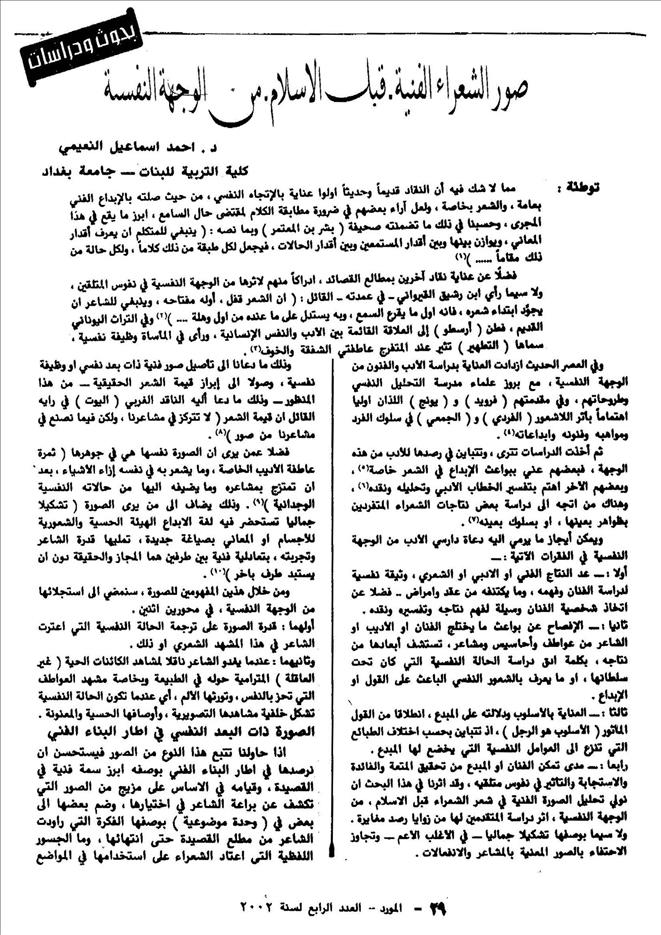 بحوث ودراسات
صور الشعراء الفنية . قبل الاسلام . من الوجهة النفسية
د . احمد اسماعيل النعيمي
كلية التربية للبنات — جامعة بغداد
توطئة : مما لا شك فيه أن النقاد قديماً وحديثاً اولوا عناية بالإتجاه النفسي ، من حيث صلته بالإبداع الفني
بعامة ، والشعر بخاصة ، ولعل آراء بعضهم في ضرورة مطابقة الكلام لمقتضى حال السامع ، ابرز ما يقع في هذا
المجرى ، وحسبنا في ذلك ما تضمنته صحيفة ( بشر بن المعتمر ) وبما نصه : ( ينبغي للمتكلم ان يعرف أقدار
المعاني ، ويوازن بينها وبين أقدار المستمعين وبين أقدار الحالات ، فيجعل لكل طبقة من ذلك كلاماً ، ولكل حالة من
ذلك مقاماً ...... )(١)
فضلًا عن عناية نقاد آخرين بمطالع القصائد ، ادراكاً منهم لاثرها من الوجهة النفسية في نفوس المتلقين ،
ولا سيما رأي ابن رشيق القيرواني - في عمدته - القائل : ( ان الشعر قفل ، أوله مفتاحه ، وينبغي للشاعر ان
يجوّد ابتداء شعره ، فانه اول ما يقرع السمع ، وبه يستدل على ما عنده من اول وهلة .... )(٢) وفي التراث اليوناني
القديم ، فطن ( أرسطو ) إلى العلاقة القائمة بين الأدب والنفس الإنسانية ، ورأى في المأساة وظيفة نفسية ،
سماها ( التطهير ) تثير عند المتفرج عاطفتي الشفقة والخوف(٣) .
وفي العصر الحديث ازدادت العناية بدراسة الأدب والفنون من
الوجهة النفسية ، مع بروز علماء مدرسة التحليل النفسي
وطروحاتهم ، وفي مقدمتهم ( فرويد ) و ( يونج ) اللذان اوليا
اهتماماً بأثر اللاشعور ( الفردي ) و ( الجمعي ) في سلوك الفرد
ومواهبه وفنونه وابداعاته(٤) .
ثم أخذت الدراسات تترى ، وتتباين في رصدها للأدب من هذه
الوجهة ، فبعضهم عني ببواعث الإبداع في الشعر خاصة(٥) ،
وبعضهم الآخر اهتم بتفسير الخطاب الأدبي وتحليله ونقده(٦) ،
وهناك من اتجه الى دراسة بعض نتاجات الشعراء المتفردين
بظواهر بعينها ، او بسلوك بعينه(٧) .
ويمكن أيجاز ما يرمي اليه دعاة دارسي الأدب من الوجهة
النفسية في الفقرات الآتية : —
أولًا : — عد النتاج الفني او الادبي او الشعري ، وثيقة نفسية
لدراسة الفنان وفهمه ، وما يكتنفه من عقد وامراض .. فضلا عن
اتخاذ شخصية الفنان وسيلة لفهم نتاجه وتفسيره ونقده .
ثانيا : — الإفصاح عن بواعث ما يختلج الفنان او الأديب او
الشاعر من عواطف وأحاسيس ومشاعر ، تستشف أبعادها من
نتاجه ، بكلمة ادق دراسة الحالة النفسية التي كان تحت
سلطانها ، او ما يعرف بالشعور النفسي الباعث على القول او
الإبداع .
ثالثا : — العناية بالأسلوب ودلالته على المبدع ، انطلاقا من القول
المأثور ( الأسلوب هو الرجل ) ، اذ تتباين بحسب اختلاف الطبائع
التي تنزع الى العوامل النفسية التي يخضع لها المبدع .
رابعا : — مدى تمكن الفنان او المبدع من تحقيق المتعة والفائدة
والاستجابة والتأثير في نفوس متلقيه ، وقد اثرنا في هذا البحث ان
نولي تحليل الصورة الفنية في شعر الشعراء قبل الاسلام ، من
الوجهة النفسية ، اثر دراسة المتقدمين لها من زوايا رصد مغايرة .
ولا سيما بوصفها تشكيلا جماليا — في الأغلب الأعم — وتجاوز
الاحتفاء بالصور المعنية بالمشاعر والانفعالات .
وذلك ما دعانا الى تأصيل صور فنية ذات بعد نفسي او وظيفة
نفسية ، وصولا الى إبراز قيمة الشعر الحقيقية — من هذا
المنظور — وذلك ما دعا أليه الناقد الغربي ( اليوت ) في رايه
القائل ان قيمة الشعر ( لا تتركز في مشاعرنا ، ولكن فيما نصنع في
مشاعرنا من صور )(٨) .
فضلا عمن يرى ان الصورة نفسها هي في جوهرها ( ثمرة
عاطفة الأديب الخاصة ، وما يشعر به في نفسه إزاء الأشياء ، بعد
ان تمتزج بمشاعره وما يضيفه اليها من حالاته النفسية
الوجدانية )(٩) . وذلك يضاف الى من يرى الصورة ( تشكيلا
جماليا تستحضر فيه لغة الابداع الهيئة الحسية والشعورية
للأجسام او المعاني بصياغة جديدة ، تمليها قدرة الشاعر
وتجربته ، بتعادلية فنية بين طرفين هما المجاز والحقيقة دون ان
يستبد طرف بآخر )(١٠) .
ومن خلال هذين المفهومين للصورة ، سنمضي الى استجلائها
من الوجهة النفسية ، في محورين اثنين .
أولهما : قدرة الصورة على ترجمة الحالة النفسية التي اعترت
الشاعر في هذا المشهد الشعري او ذلك .
وثانيهما : عندما يغدو الشاعر ناقلا لمشاهد الكائنات الحية ( غير
العاقلة ) المترامية حوله في الطبيعة وبخاصة مشهد العواطف
التي تحز بالنفس ، وتورثها الألم ، أي عندما تكون الحالة النفسية
تشكل خلفية مشاهدها التصويرية ، وأوصافها الحسية والمعنونة .
الصورة ذات البعد النفسي في اطار البناء الفني
اذا حاولنا تتبع هذا النوع من الصور فيستحسن ان
نرصدها في اطار البناء الفني بوصفه ابرز سمة فنية في
القصيدة ، وقيامه في الاساس على مزيج من الصور التي
تكشف عن براعة الشاعر في اختيارها ، وضم بعضها الى
بعض في ( وحدة موضوعية ) بوصفها الفكرة التي راودت
الشاعر من مطلع القصيدة حتى انتهائها ، وما الجسور
اللفظية التي اعتاد الشعراء على استخدامها في المواضع
٣٩ - المورد - العدد الرابع لسنة ٢٠٠٢